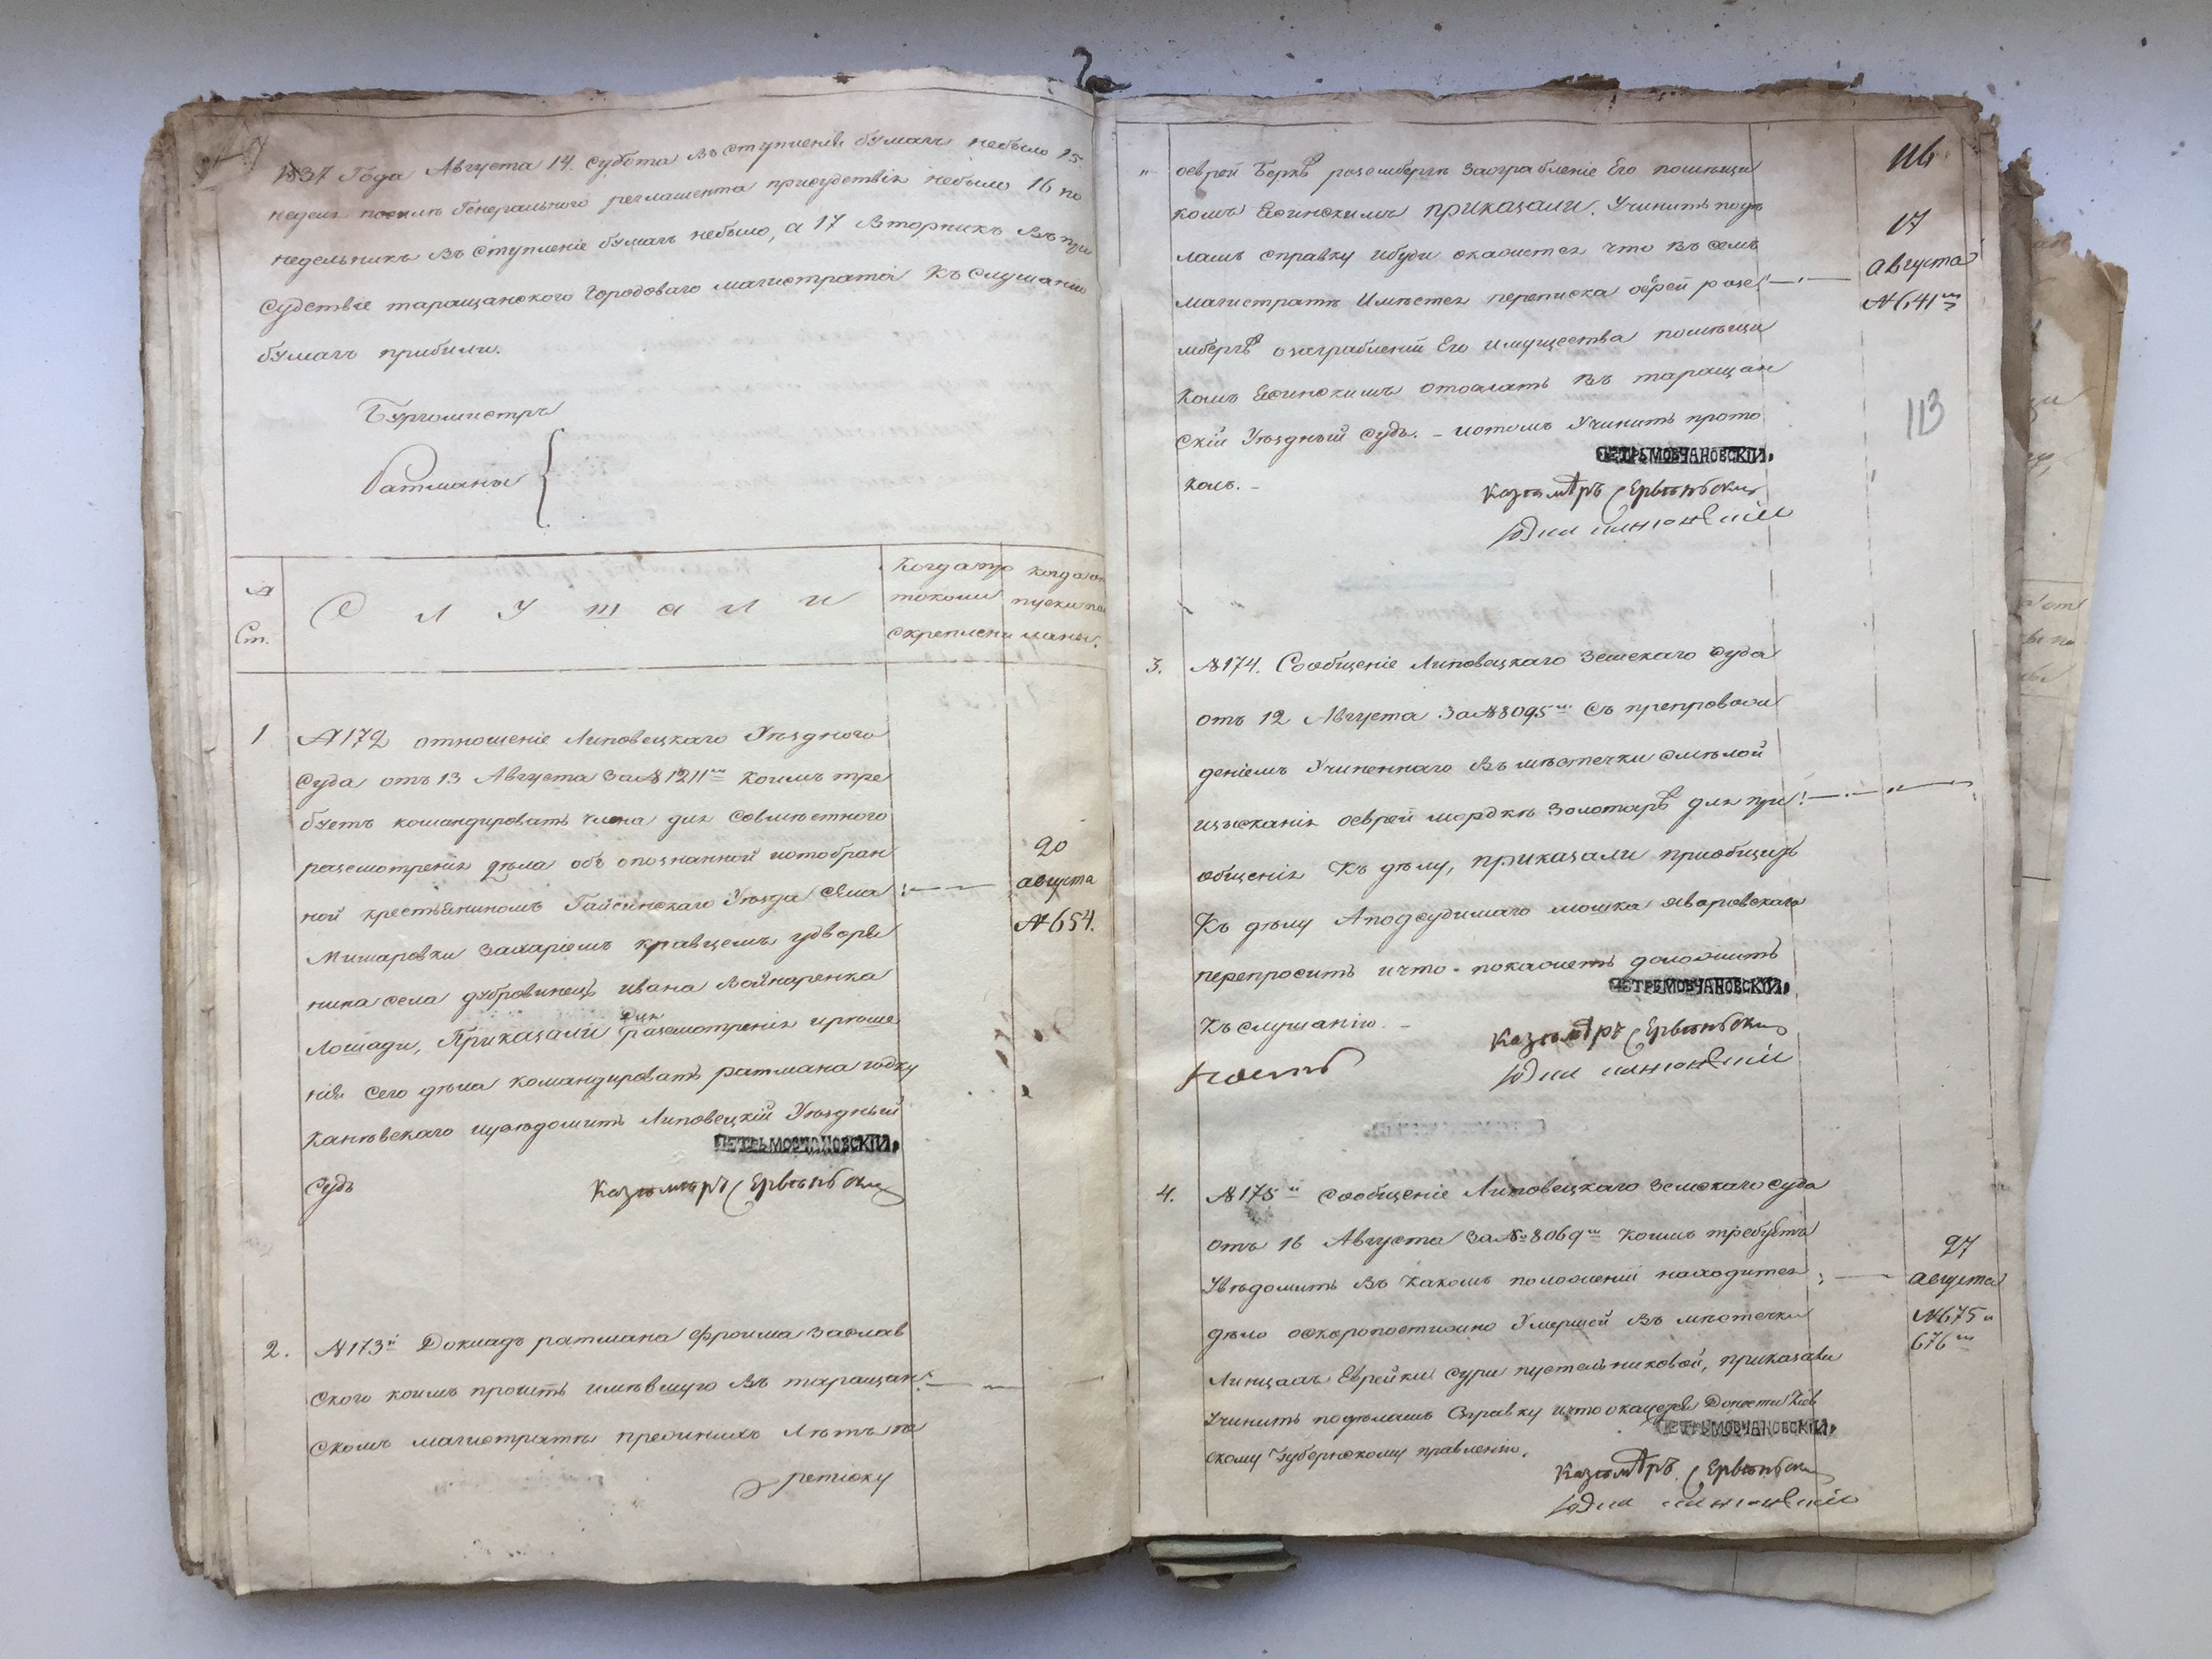 1837 Года Августа 14. субота въступленія бумагъ небыло 15.
недели посилѣ Генеральнаго регламента присудствія небыло 16 по
недельникъ въступленіе бумагъ небыло, а 17 вторникъ въ при
судствіе таращанского городоваго магистрата къ слушанію
бумагъ прибыли.
Бургомистръ
Ратманы
№ Ст.
Слушали
Когда про
токолы
скреплены
когда от
пуски по
сланы.
1
№172 отношеніе Липовецкаго Уѣзднаго
суда отъ 13 Августа за №1211мъ коимъ тре
буетъ командировать члена для совмѣстного
разсмотренія дѣла объ опознанной и отобран
ной крестьяниномъ Гайсинскаго Уѣзда села
Мишаровки Захаріемъ кравцемъ у дворя
нина села дубровинецъ ивана Войнаренка
лошади, Приказали для разсмотренія и рѣше
нія сего дѣла командировать ратмана юдку
Канѣвскаго и увѣдомить Липовецкій Уѣздный
судъ
ПЕТРЪ МОВЧАНОВСКІЙ.
20
августа
№654.
2.
№173й Докладъ ратмана фроима Заслав
ского коимъ проситъ имѣвшуюся въ таращан
скомъ магистратѣ прежнихъ лѣтъ пе
реписку
"
оеврей Беркѣ розембергѣ заграбленіе Его помѣщи
комъ приказали. Учинить подѣ
ламъ справку ибуди окажется что въ семъ
магистратѣ имѣется переписка оеврей розе
мбергѣ ограбленіи Его имущества помѣщи
комъ отослать въ таращан
скій Уѣздный судъ. – и о томъ Учинить прото
колъ. –
ПЕТРЪ МОВЧАНОВСКІЙ.
116
17
августа
№641мъ
113
3.
№174. Сообщеніе Липовецкаго Земскаго суда
отъ 12 Августа за №8095мъ съ препровож
деніемъ Учиненнаго въ мѣстечки смѣлой
изысканія оеврей мордкѣ Золотарѣ для при
общенія къ дѣлу, приказали приобщить
къ дѣлу А подсудимаго мошка яворовскаго
перепросить и что покажетъ доложить
къ слушанію. –
ПЕТРЪ МОВЧАНОВСКІЙ.
4.
№175й сообщеніе Липовецкаго Земскаго суда
отъ 16 Августа за №8069мъ коимъ требуетъ
Увѣдомить въ какомъ положеніи находится
дѣло оскоропостижно Умершей въ мѣстечки
Линцахъ Еврейки суры пустельниковой, приказали
Учинить по дѣламъ Справку и что окажется Донести Кіев
скому Губернскому правленію.
ПЕТРЪ МОВЧАНОВСКІЙ.
27
августа
№675и
676мъ